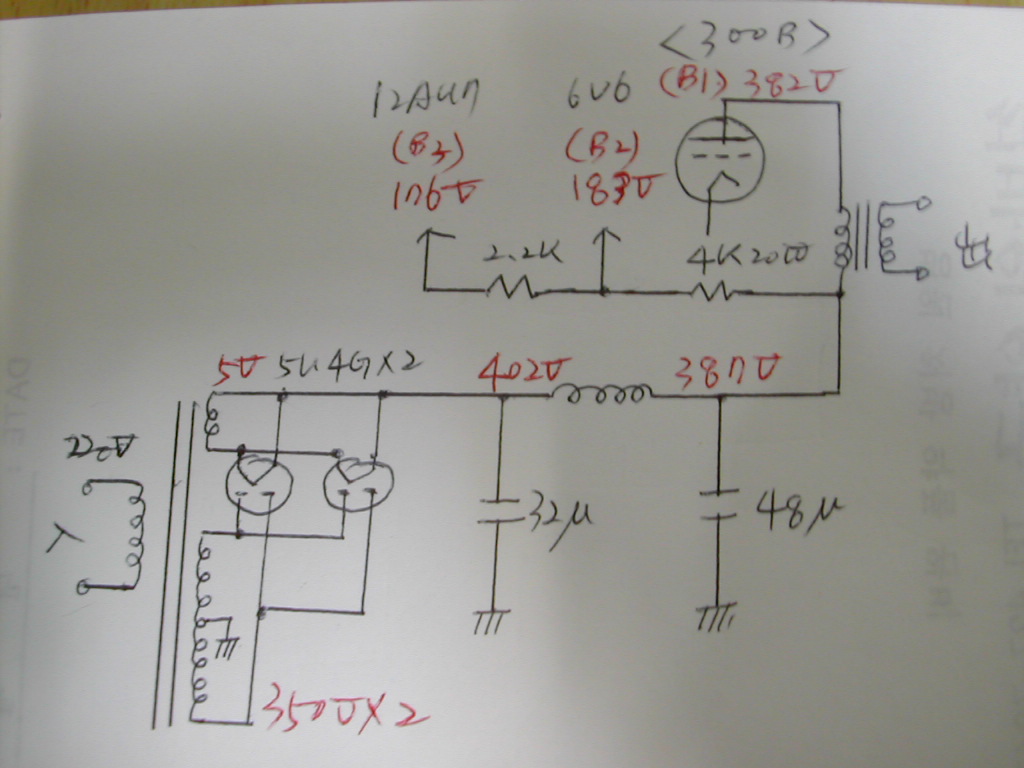 <300B>
12AU7 6V6 (B1) 382V
(B3) (B2)
176V 183V
2.2K 4K20W
5V 5U4G×2 402V 387V
220V
32μ 48μ
350V×2